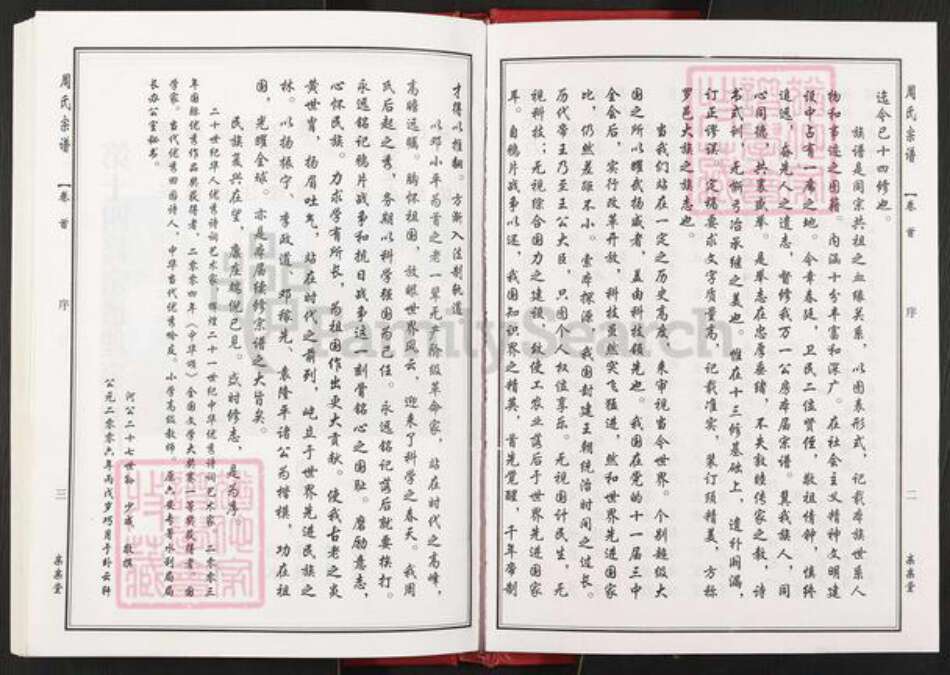 周氏宗谱
卷首
序
二
迄今已十四修也。
族谱是同宗共祖之血缘关系，以图表形式，记载本族世系人
物和事迹之图籍。内涵十分丰富和深广。在社会主义精神文明建
设中占有一席之地。今幸春廷、卫民二位贤侄，敬祖情钟，慎终
追远，奋先人之遗志，督修我万一公房本届宗谱。冀我族人，同
心同德，共襄盛举。是举志在忠厚垂绪，不失敦睦传家之教，诗
书式训，无惭弓冶承继之美也。惟在十三修基础上，遗补阙漏，
订正谬误。定稿要求文字质量高，记载准实，装订须精美，方称
罗邑大族之族志也。
当我们站在一定之历史高度，来审视当今世界。个别超级大
国之所以耀我扬威者，盖由科技领先也。我国在党的十一届三中
全会后，实行改革开放，科技虽然突飞猛进，然和世界先进国家
比，仍然差距不小。索本探源，我国封建王朝统治时间之过长。
历代帝王乃至王公大臣，只图个人权位享乐。无视国计民生，无
视科技；无视综合国力之建设，致使工农业落后于世界先进国家
耳。自鸦片战争以还，我国知识界之精英，首先觉醒，千年帝制
才得以推翻。方渐入法制轨道
以邓小平为首之老一辈无产阶级革命家，站在时代之高峰，
高瞻远瞩。胸怀祖国，放眼世界风云，迎来了科学之春天。我周
氏后起之秀，务期以科学强国为己任。永远铭记落后就要挨打。
永远铭记鸦片战争和抗日战争这一刻骨铭心之国耻。磨励意志，
心怀民族。力求学有所长，为祖国作出更大贡献。使我古老之炎
黄世胄，扬眉吐气，站在时代之前列，屹立于世界先进民族之
林。以杨振宁、李政道、邓稼先、袁隆平诸公为楷模，功在祖
国，光耀全球。亦是本届续修宗谱之大旨矣。
民族复兴在望，赓座端倪已见。盛时修志，是为序
二十世纪华人优秀诗词艺术家，辉煌二十一世纪中华优秀诗词艺术家。二零零三
年国际优秀作品奖获得者，二零零四年《中华颂》全国文学大奖赛一等奖获得者。国
学家。当代优秀田园诗人，中华当代优秀吟友。小学高级教师。原六安专署水利局局
长办公室秘书。
河公二十七世孙 少成 敬撰
公元二零零六年丙戌岁巧月于卧云轩
周氏宗谱
卷首
序
三